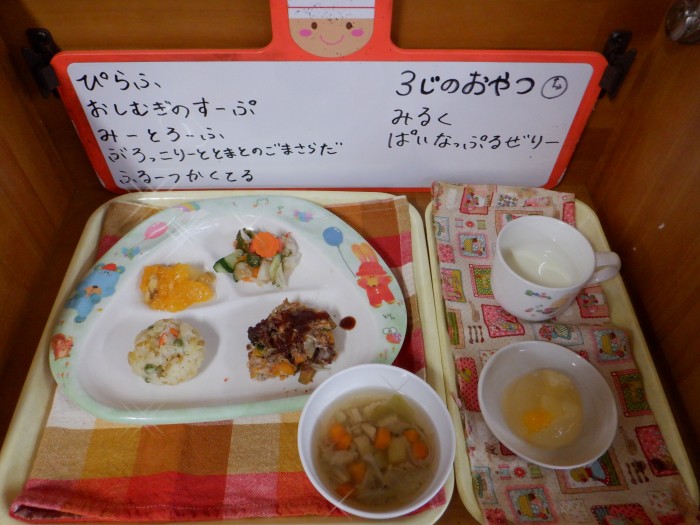 ぴらふ
おしむぎのすーぷ
みーとろーふ
ぶろっこりーととまとのごまさらだ
ふるーつかくてる
3じのおやつ
みるく
ぱいなっぷるぜりー